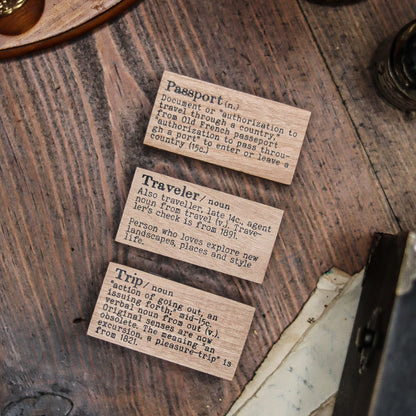 Passport (n.)
Document or "authorization to
travel through a country,"
from Old French passeport
"authorization to pass throu-
gh a port" to enter or leave a
country (15c.)
Traveler / noun
Also traveller, late 14c., agent
noun from travel (v.). Trave-
ler's check is from 1891.
Person who loves explore new
landscapes, places and style
life.
Trip / noun
"action of going out, an
issuing forth;" mid-15c.,
verbal noun from out (v.).
Original senses are now
obsolete. The meaning "an
excursion, a pleasure-trip" is
from 1821.